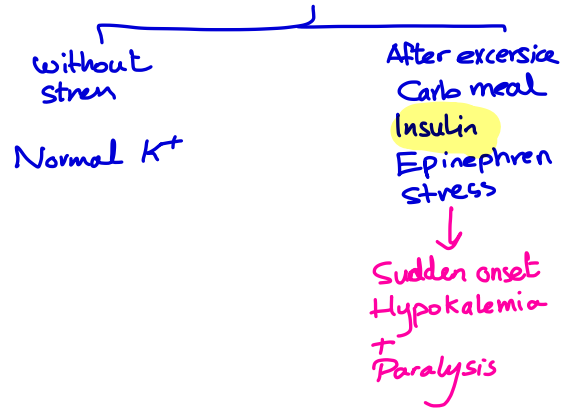 without
stren
Normal K+
After excersice
Carb meal
Insulin
Epinephren
stress
Sudden onset
Hypokalemia
+
Paralysis